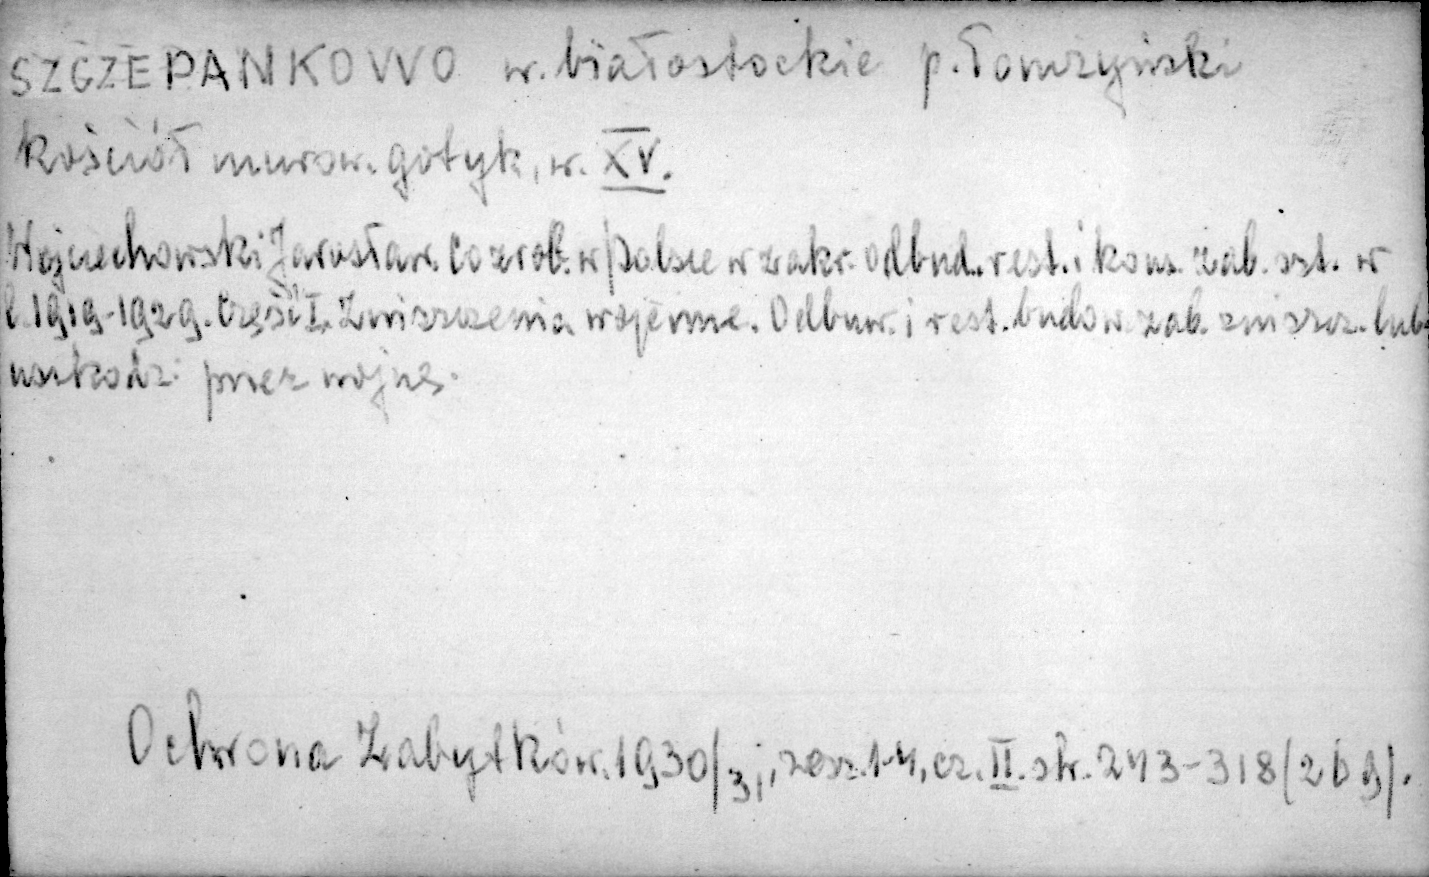 SZCZEPANKOWO w. białostockie p. Łomżyński
kościół murow. gotyk, w. XV.
Wojciechowski Jarosław. Co zrob. w Polsce w zakr. odbud. rest. i kons. zab. szt. w
l. 1919-1929. Część I. Zniszczenia wojenne. Odbuw. i rest. budow. zab. zniszcz. lub
uszkodz. przez wojnę.
Ochrona Zabytków. 1930/31, zesz. 1-4, cz. II. str. 243-318 (269).